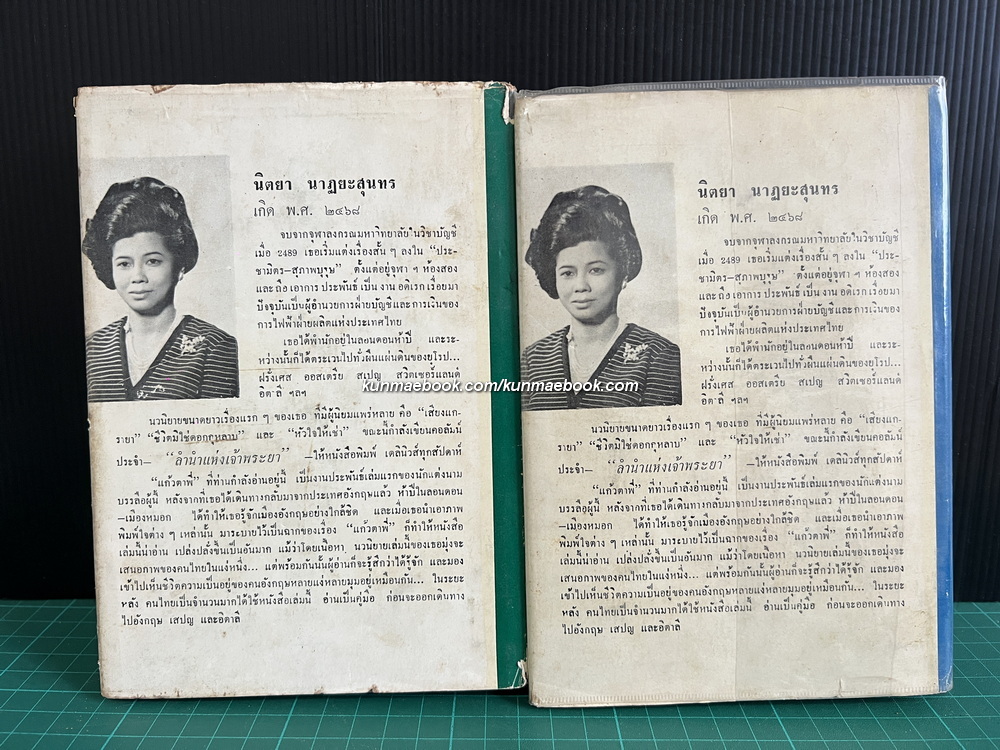 นิตยา นาฏยะสุนทร
เกิด พ.ศ. ๒๔๖๘
จบจากจุฬาลงกรณมหาวิทยาลัยในวิชาบัญชี
เมื่อ 2489 เธอเริ่มแต่งเรื่องสั้น ๆ ลงใน “ประ-
ชามิตร-สุภาพบุรุษ” ตั้งแต่อยู่จุฬา ฯ ห้องสอง
และถือเอาการประพันธ์เป็นงานอดิเรกเรื่อยมา
ปัจจุบันเป็นผู้อำนวยการฝ่ายบัญชีและการเงินของ
การไฟฟ้าฝ่ายผลิตแห่งประเทศไทย
เธอได้พำนักอยู่ในลอนดอนห้าปี และระ-
หว่างนั้นก็ได้ตระเวนไปทั่วผืนแผ่นดินของยุโรป...
ฝรั่งเศส ออสเตรีย สเปญ สวิตเซอร์แลนด์
อิตาลี ฯลฯ
นวนิยายขนาดยาวเรื่องแรก ๆ ของเธอ ที่มีผู้นิยมแพร่หลาย คือ “เสียงแก-
รายา” “ชีวิตมิใช่ดอกกุหลาบ” และ “หัวใจให้เช่า” ขณะนี้กำลังเขียนคอลัมน์
ประจำ- “ลำนำแห่งเจ้าพระยา” -ให้หนังสือพิมพ์ เดลินิวส์ทุกสัปดาห์
“แก้วตาพี่” ที่ท่านกำลังอ่านอยู่นี้ เป็นงานประพันธ์เล่มแรกของนักแต่งนาม
บรรลือผู้นี้ หลังจากที่เธอได้เดินทางกลับมาจากประเทศอังกฤษแล้ว ห้าปีในลอนดอน
-เมืองหมอก ได้ทำให้เธอรู้จักเมืองอังกฤษอย่างใกล้ชิด และเมื่อเธอนำเอาภาพ
พิมพ์ใจต่าง ๆ เหล่านั้น มาระบายไว้เป็นฉากของเรื่อง “แก้วตาพี่” ก็ทำให้หนังสือ
เล่มนี้น่าอ่าน เปล่งปลั่งขึ้นเป็นอันมาก แม้ว่าโดยเนื้อหา นวนิยายเล่มนี้ของเธอมุ่งจะ
เสนอภาพของคนไทยในแง่หนึ่ง... แต่พร้อมกันนั้นผู้อ่านก็จะรู้สึกว่าได้รู้จัก และมอง
เข้าไปเห็นชีวิตความเป็นอยู่ของคนอังกฤษหลายแง่หลายมุมอยู่เหมือนกัน... ในระยะ
หลัง คนไทยเป็นจำนวนมากได้ใช้หนังสือเล่มนี้ อ่านเป็นคู่มือ ก่อนจะออกเดินทาง
ไปอังกฤษ เสปญ และอิตาลี
นิตยา นาฏยะสุนทร
เกิด พ.ศ. ๒๔๖๘
จบจากจุฬาลงกรณมหาวิทยาลัยในวิชาบัญชี
เมื่อ 2489 เธอเริ่มแต่งเรื่องสั้น ๆ ลงใน “ประ-
ชามิตร-สุภาพบุรุษ” ตั้งแต่อยู่จุฬา ฯ ห้องสอง
และถือเอาการประพันธ์เป็นงานอดิเรกเรื่อยมา
ปัจจุบันเป็นผู้อำนวยการฝ่ายบัญชีและการเงินของ
การไฟฟ้าฝ่ายผลิตแห่งประเทศไทย
เธอได้พำนักอยู่ในลอนดอนห้าปี และระ-
หว่างนั้นก็ได้ตระเวนไปทั่วผืนแผ่นดินของยุโรป...
ฝรั่งเศส ออสเตรีย สเปญ สวิตเซอร์แลนด์
อิตาลี ฯลฯ
นวนิยายขนาดยาวเรื่องแรก ๆ ของเธอ ที่มีผู้นิยมแพร่หลาย คือ “เสียงแก-
รายา” “ชีวิตมิใช่ดอกกุหลาบ” และ “หัวใจให้เช่า” ขณะนี้กำลังเขียนคอลัมน์
ประจำ- “ลำนำแห่งเจ้าพระยา” -ให้หนังสือพิมพ์ เดลินิวส์ทุกสัปดาห์
“แก้วตาพี่” ที่ท่านกำลังอ่านอยู่นี้ เป็นงานประพันธ์เล่มแรกของนักแต่งนาม
บรรลือผู้นี้ หลังจากที่เธอได้เดินทางกลับมาจากประเทศอังกฤษแล้ว ห้าปีในลอนดอน
-เมืองหมอก ได้ทำให้เธอรู้จักเมืองอังกฤษอย่างใกล้ชิด และเมื่อเธอนำเอาภาพ
พิมพ์ใจต่าง ๆ เหล่านั้น มาระบายไว้เป็นฉากของเรื่อง “แก้วตาพี่” ก็ทำให้หนังสือ
เล่มนี้น่าอ่าน เปล่งปลั่งขึ้นเป็นอันมาก แม้ว่าโดยเนื้อหา นวนิยายเล่มนี้ของเธอมุ่งจะ
เสนอภาพของคนไทยในแง่หนึ่ง... แต่พร้อมกันนั้นผู้อ่านก็จะรู้สึกว่าได้รู้จัก และมอง
เข้าไปเห็นชีวิตความเป็นอยู่ของคนอังกฤษหลายแง่หลายมุมอยู่เหมือนกัน... ในระยะ
หลัง คนไทยเป็นจำนวนมากได้ใช้หนังสือเล่มนี้ อ่านเป็นคู่มือ ก่อนจะออกเดินทาง
ไปอังกฤษ เสปญ และอิตาลี
kunmaebook.com/kunmaebook.com